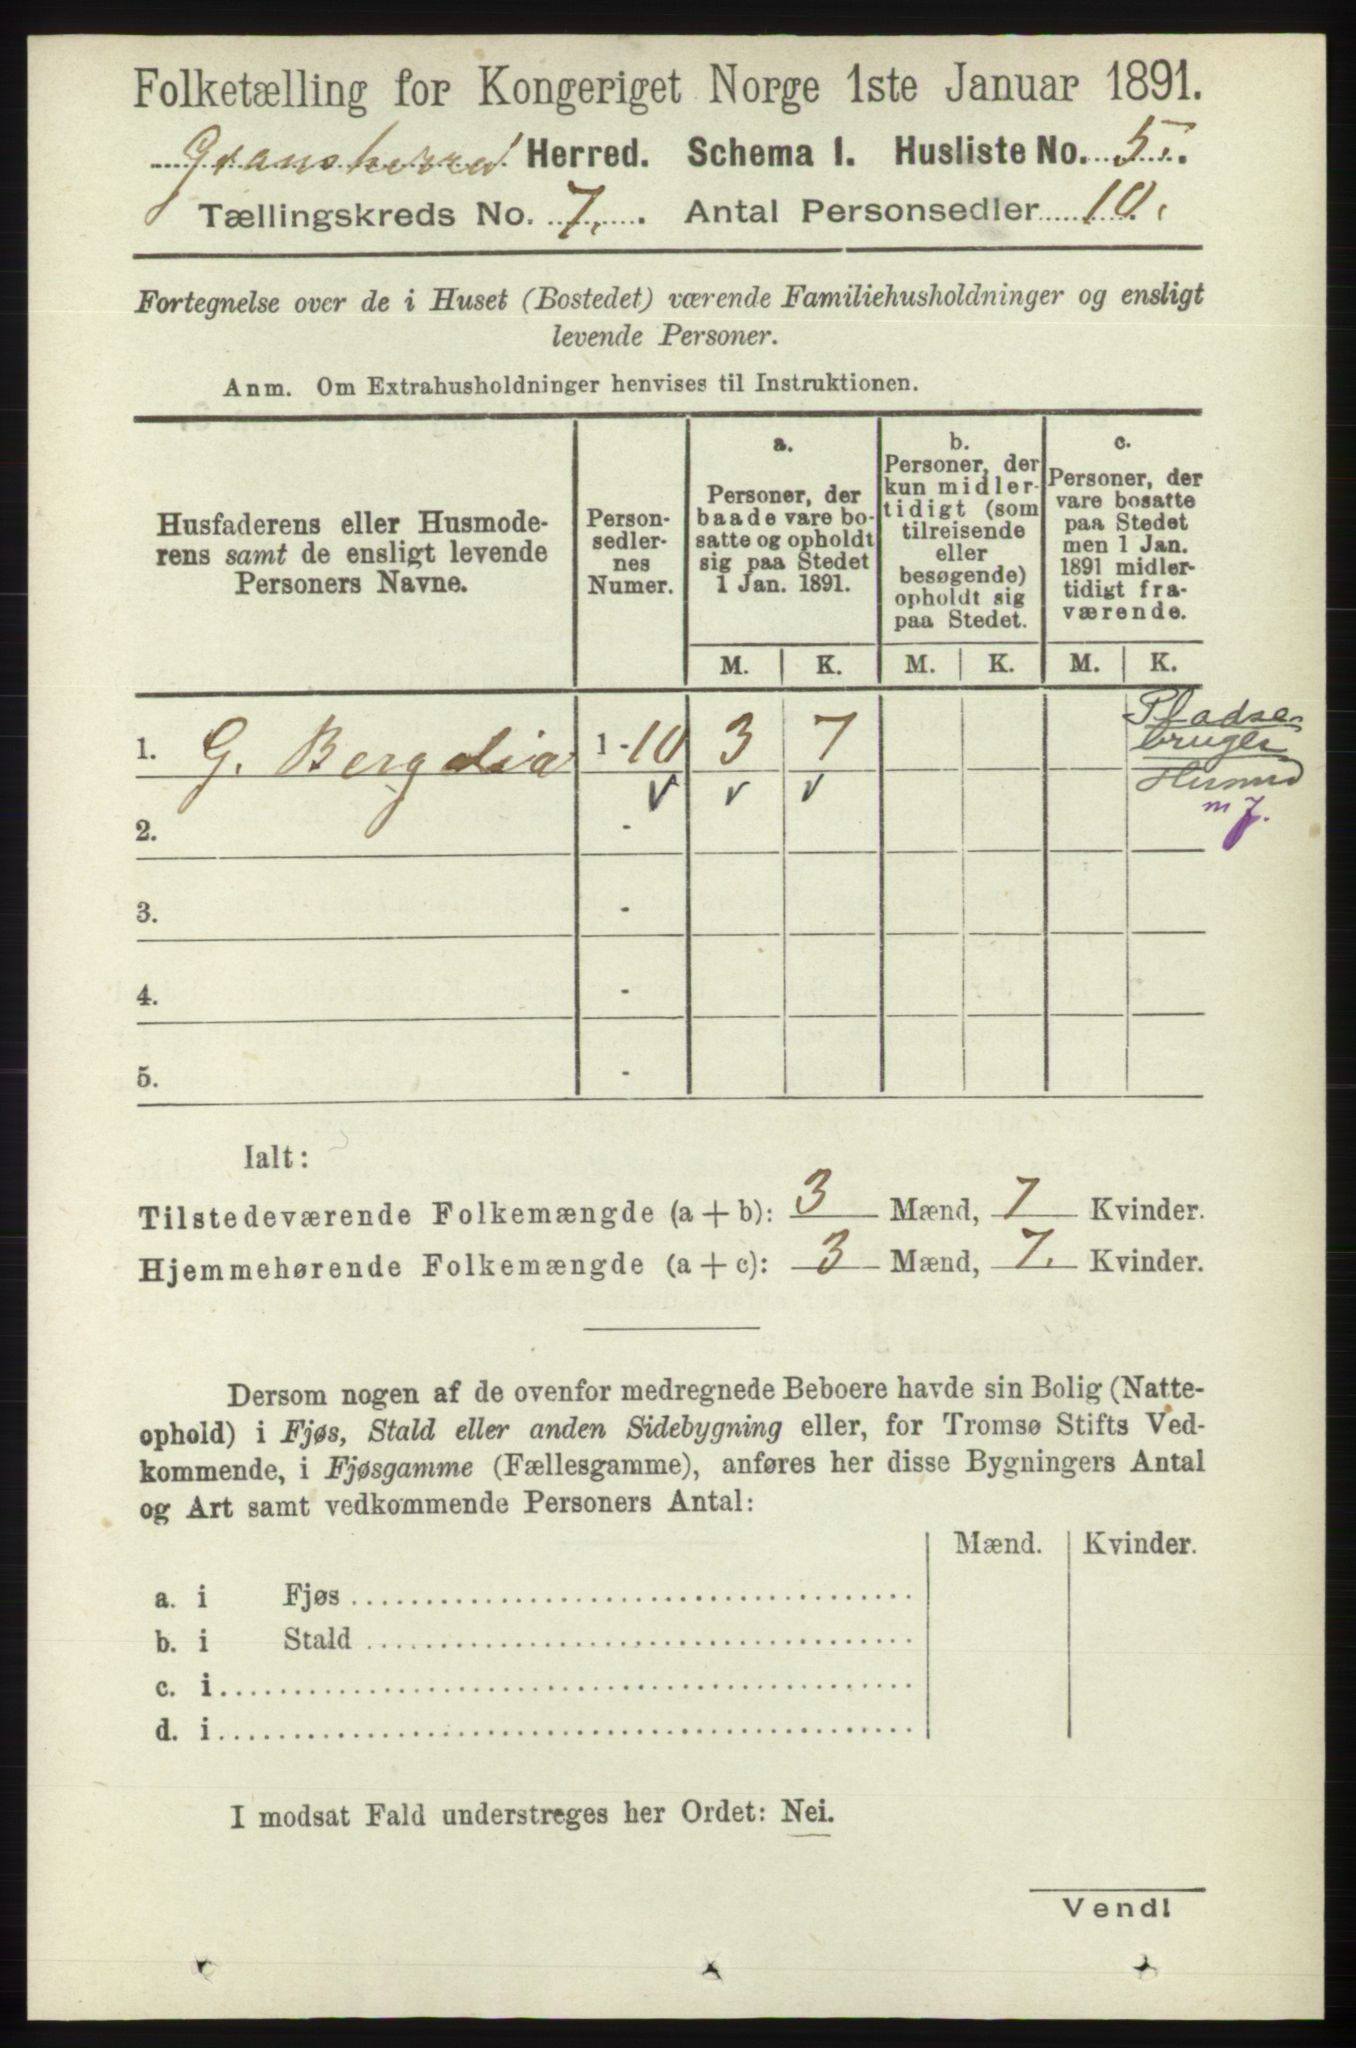 Folketælling for Kongeriget Norge 1ste Januar 1891.
Gransherred Herred. Schema 1. Husliste No. 5.
Tællingskreds No. 7. Antal Personsedler 10.
Fortegnelse over de i Huset (Bostedet) værende Familiehusholdninger og ensligt
levende Personer.
Anm. Om Extrahusholdninger henvises til Instruktionen.
Husfaderens eller Husmode-
rens samt de ensligt levende
Personers Navne.
Person-
sedler-
nes
Numer.
a.
Personer, der
baade vare bo-
satte og opholdt
sig paa Stedet
1 Jan. 1891.
b.
Personer, der
kun midler-
tidigt (som
tilreisende
eller
besøgende)
opholdt sig
paa Stedet.
c.
Personer, der
vare bosatte
paa Stedet
men 1 Jan.
1891 midler-
tidigt fra-
værende.
M. K. M. K. M. K.
1. G. Bergslia 1-10 3 7
Pladse-
bruger
Husmd
m J.
2. -
3. -
4. -
5. -
Ialt:
Tilstedeværende Folkemængde (a + b): 3 Mænd, 7 Kvinder.
Hjemmehørende Folkemængde (a + c): 3 Mænd, 7. Kvinder.
Dersom nogen af de ovenfor medregnede Beboere havde sin Bolig (Natte-
ophold) i Fjøs, Stald eller anden Sidebygning eller, for Tromsø Stifts Ved-
kommende, i Fjøsgamme (Fællesgamme), anføres her disse Bygningers Antal
og Art samt vedkommende Personers Antal:
Mænd. Kvinder.
a. i Fjøs
b. i Stald
c. i
d. i
I modsat Fald understreges her Ordet: Nei.
Vendl